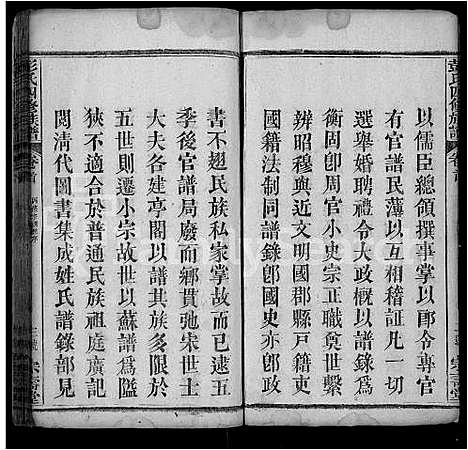 以儒臣總領撰事掌以郎令專官
有官譜民簿以互相稽証凡一切
選舉婚聘禮令大政概以譜錄爲
衡固卽周官小史宗正職奠世繫
辨昭穆與近文明國郡縣戸籍吏
國籍法制同譜錄卽國史亦卽政
書不翅民族私家掌故而已逮五
季後官譜局廢而鄉貫弛宋世士
大夫各建亭閣以譜其族多限於
五世則遷小宗故世以蘇譜爲隘
狹不適合於普通民族祖庭廣記
閱清代圖書集成姓氏譜錄部見
彭氏四修族譜
卷首